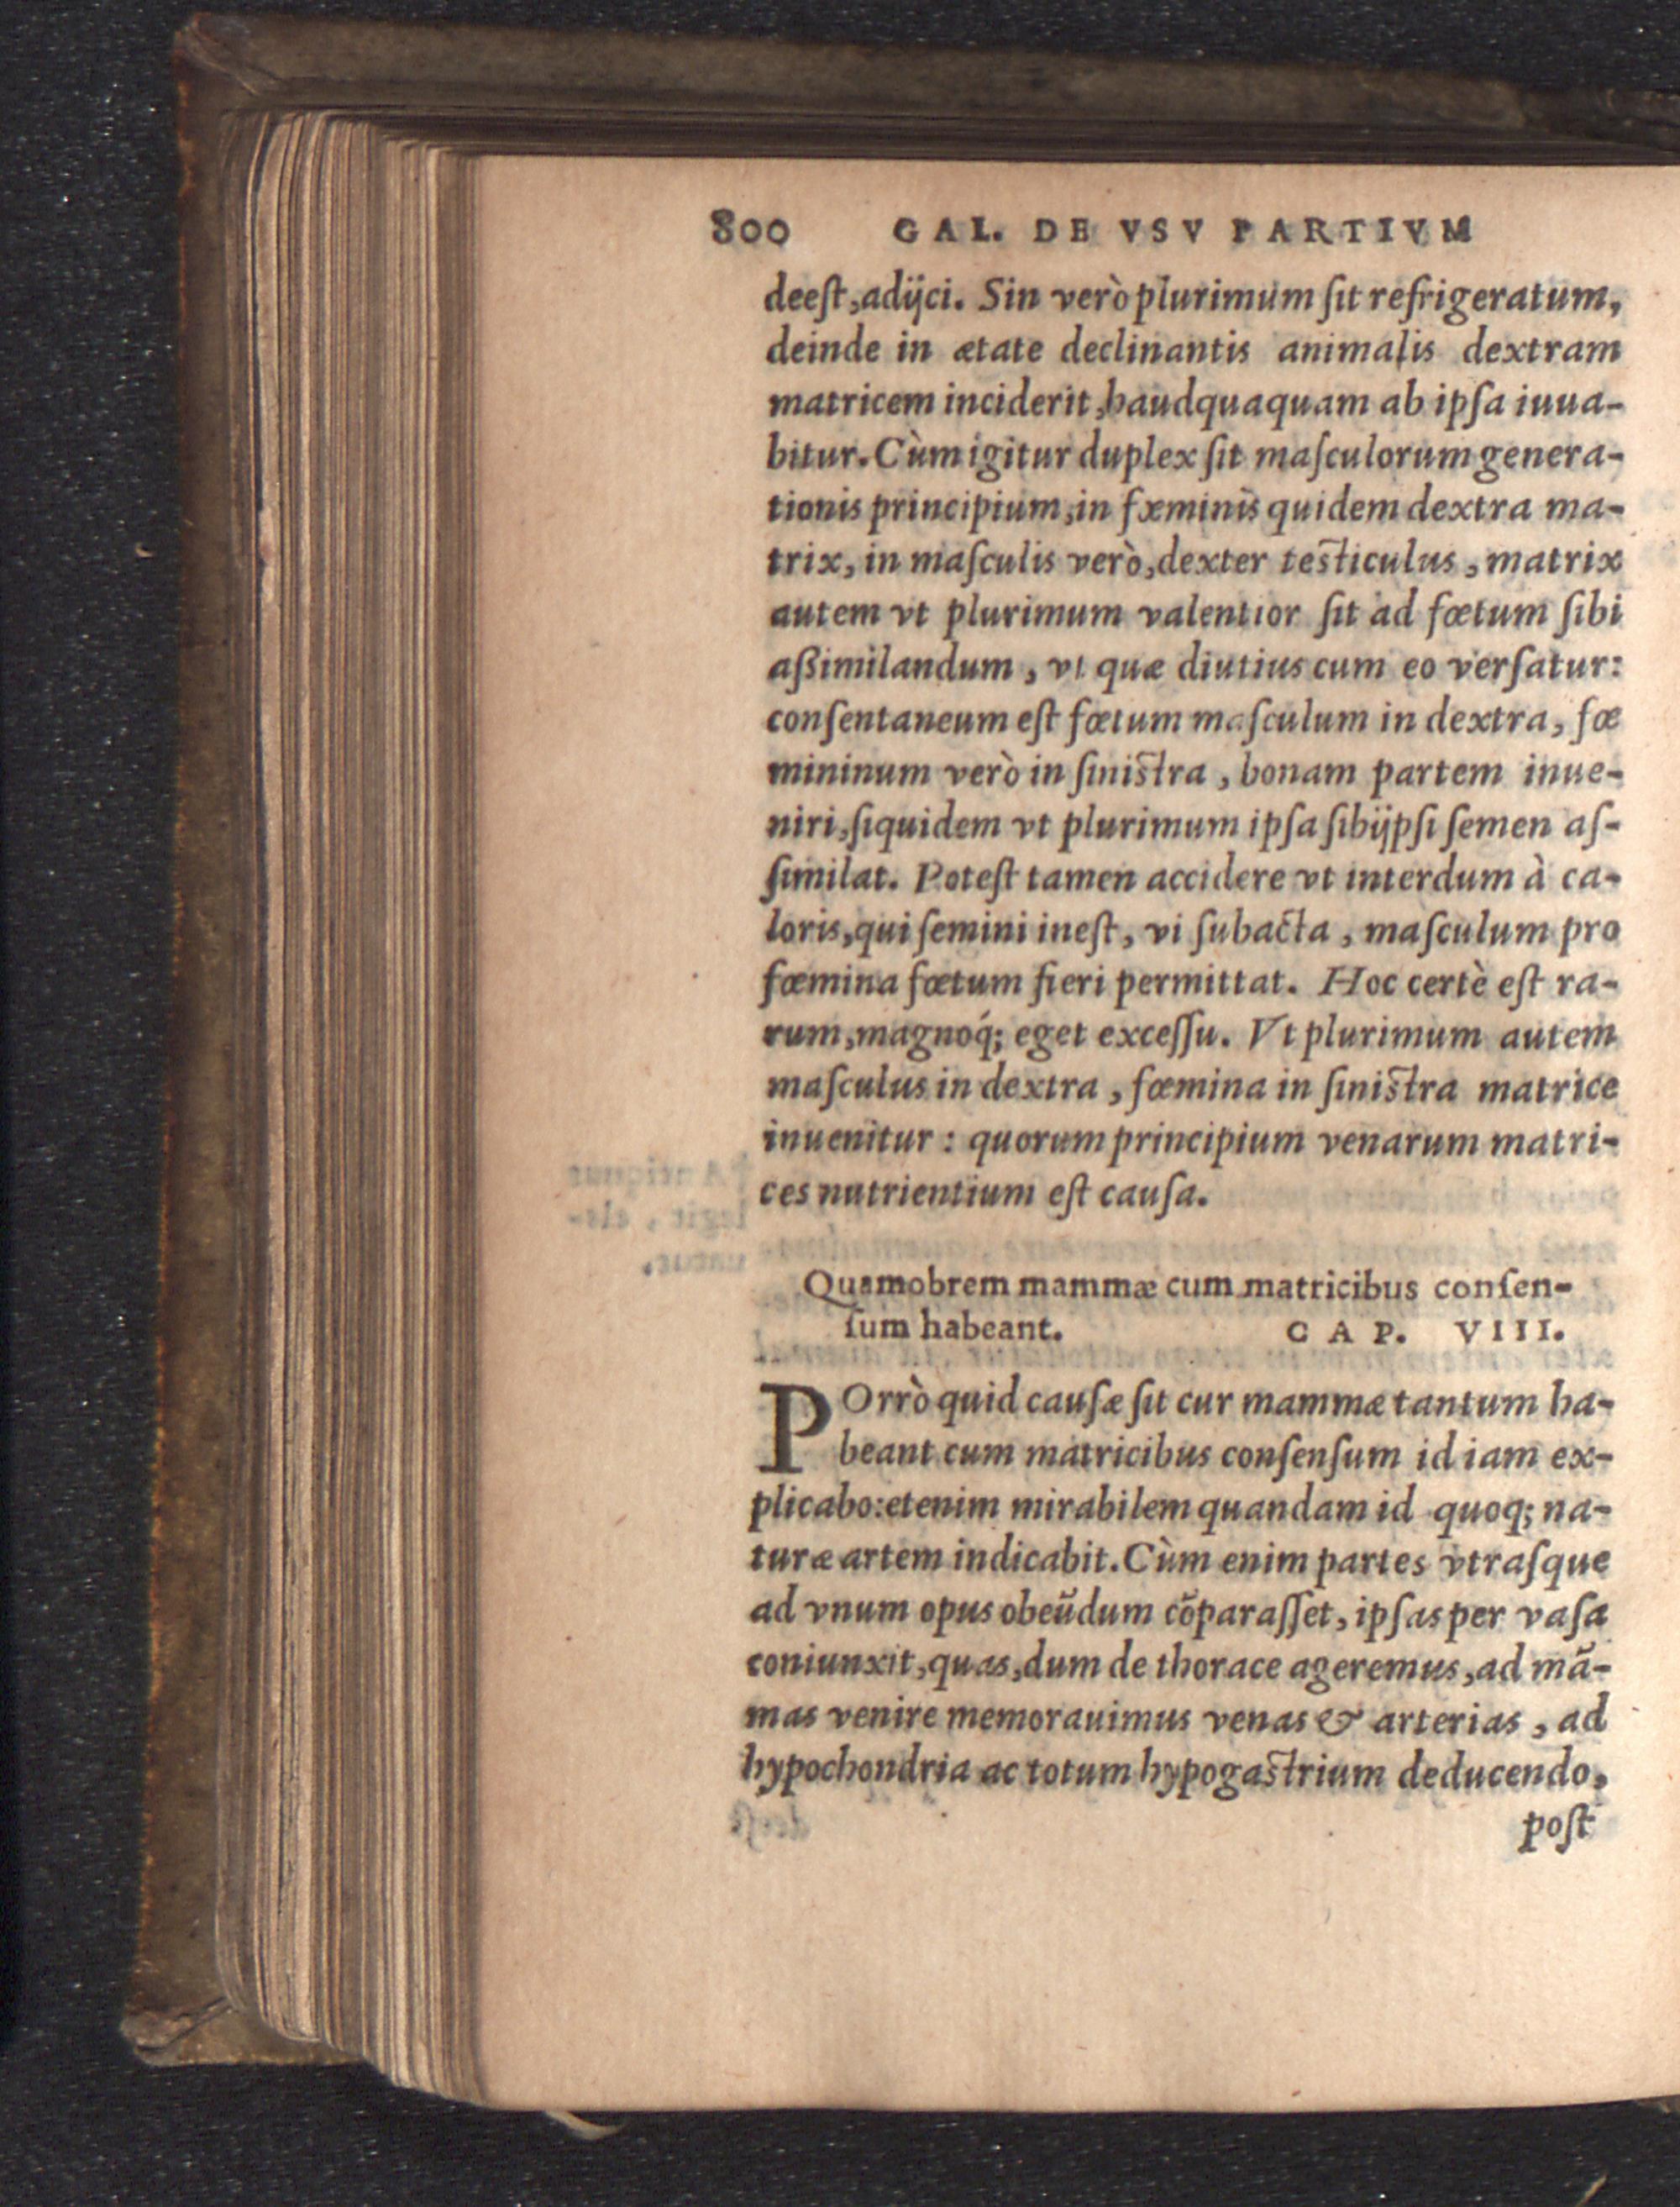 800 GAL. DE VSV PARTIVM
deeſt, adijci. Sin verò plurimum ſit refrigeratum,
deinde in ætate declinantis animalis dextram
matricem inciderit, haudquaquam ab ipſa iuua-
bitur. Cùm igitur duplex ſit maſculorum genera-
tionis principium, in fæminis quidem dextra ma-
trix, in maſculis verò, dexter teſticulus, matrix
autem vt plurimum valentior ſit ad fœtum ſibi
aßimilandum, vt quæ diutius cum eo verſatur:
conſentaneum eſt fœtum maſculum in dextra, fœ
mininum verò in ſiniſtra, bonam partem inue-
niri, ſiquidem vt plurimum ipſa ſibijpſi ſemen aſ-
ſimilat. Poteſt tamen accidere vt interdum à ca-
loris, qui ſemini ineſt, vi ſubacta, maſculum pro
fœmina fœtum fieri permittat. Hoc certè eſt ra-
rum, magnoq́; eget exceſſu. Vt plurimum autem
maſculus in dextra, fœmina in ſiniſtra matrice
inuenitur: quorum principium venarum matri-
ces nutrientium eſt cauſa.
Quamobrem mammæ cum matricibus conſen-
ſum habeant. CAP. VIII.
POrrò quid cauſæ ſit cur mammæ tantum ha-
beant cum matricibus conſenſum id iam ex-
plicabo: etenim mirabilem quandam id quoq; na-
turæ artem indicabit. Cùm enim partes vtraſque
ad vnum opus obeũdum cõparaſſet, ipſas per vaſa
coniunxit, quas, dum de thorace ageremus, ad mã-
mas venire memorauimus venas & arterias, ad
hypochondria ac totum hypogaſtrium deducendo,
poſt